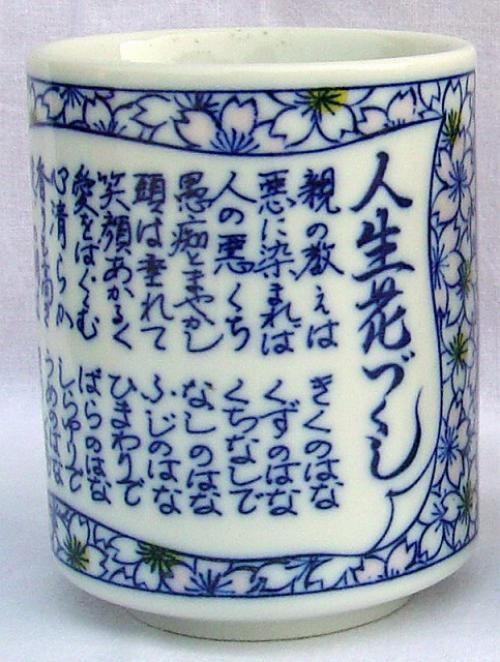 人生花づくし
親の教えは きくのはな
悪に染まれば くずのはな
人の悪くち くちなしで
愚痴とまやかし なしのはな
頭は垂れて ふじのはな
笑顔あかるく ひまわりで
愛をはぐくむ ばらのはな
心清らか しらゆりで
うめのはな